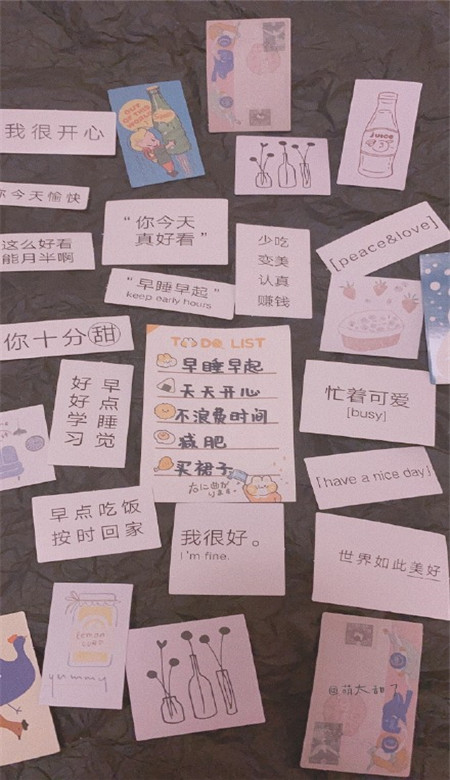 我很开心
OUT
OF THIS
WORLD
JUICE
你今天愉快
"你今天
真好看"
少吃
变美
认真
赚钱
[peace&love]
这么好看
能月半啊
"早睡早起"
keep early hours
你十分甜
TO DO LIST
早睡早起
天天开心
不浪费时间
减肥
买裙子
右に曲が
ります。
早点睡觉
好好学习
忙着可爱
[busy]
[have a nice day]
早点吃饭
按时回家
我很好。
I'm fine.
世界如此美好
lemon
yummy